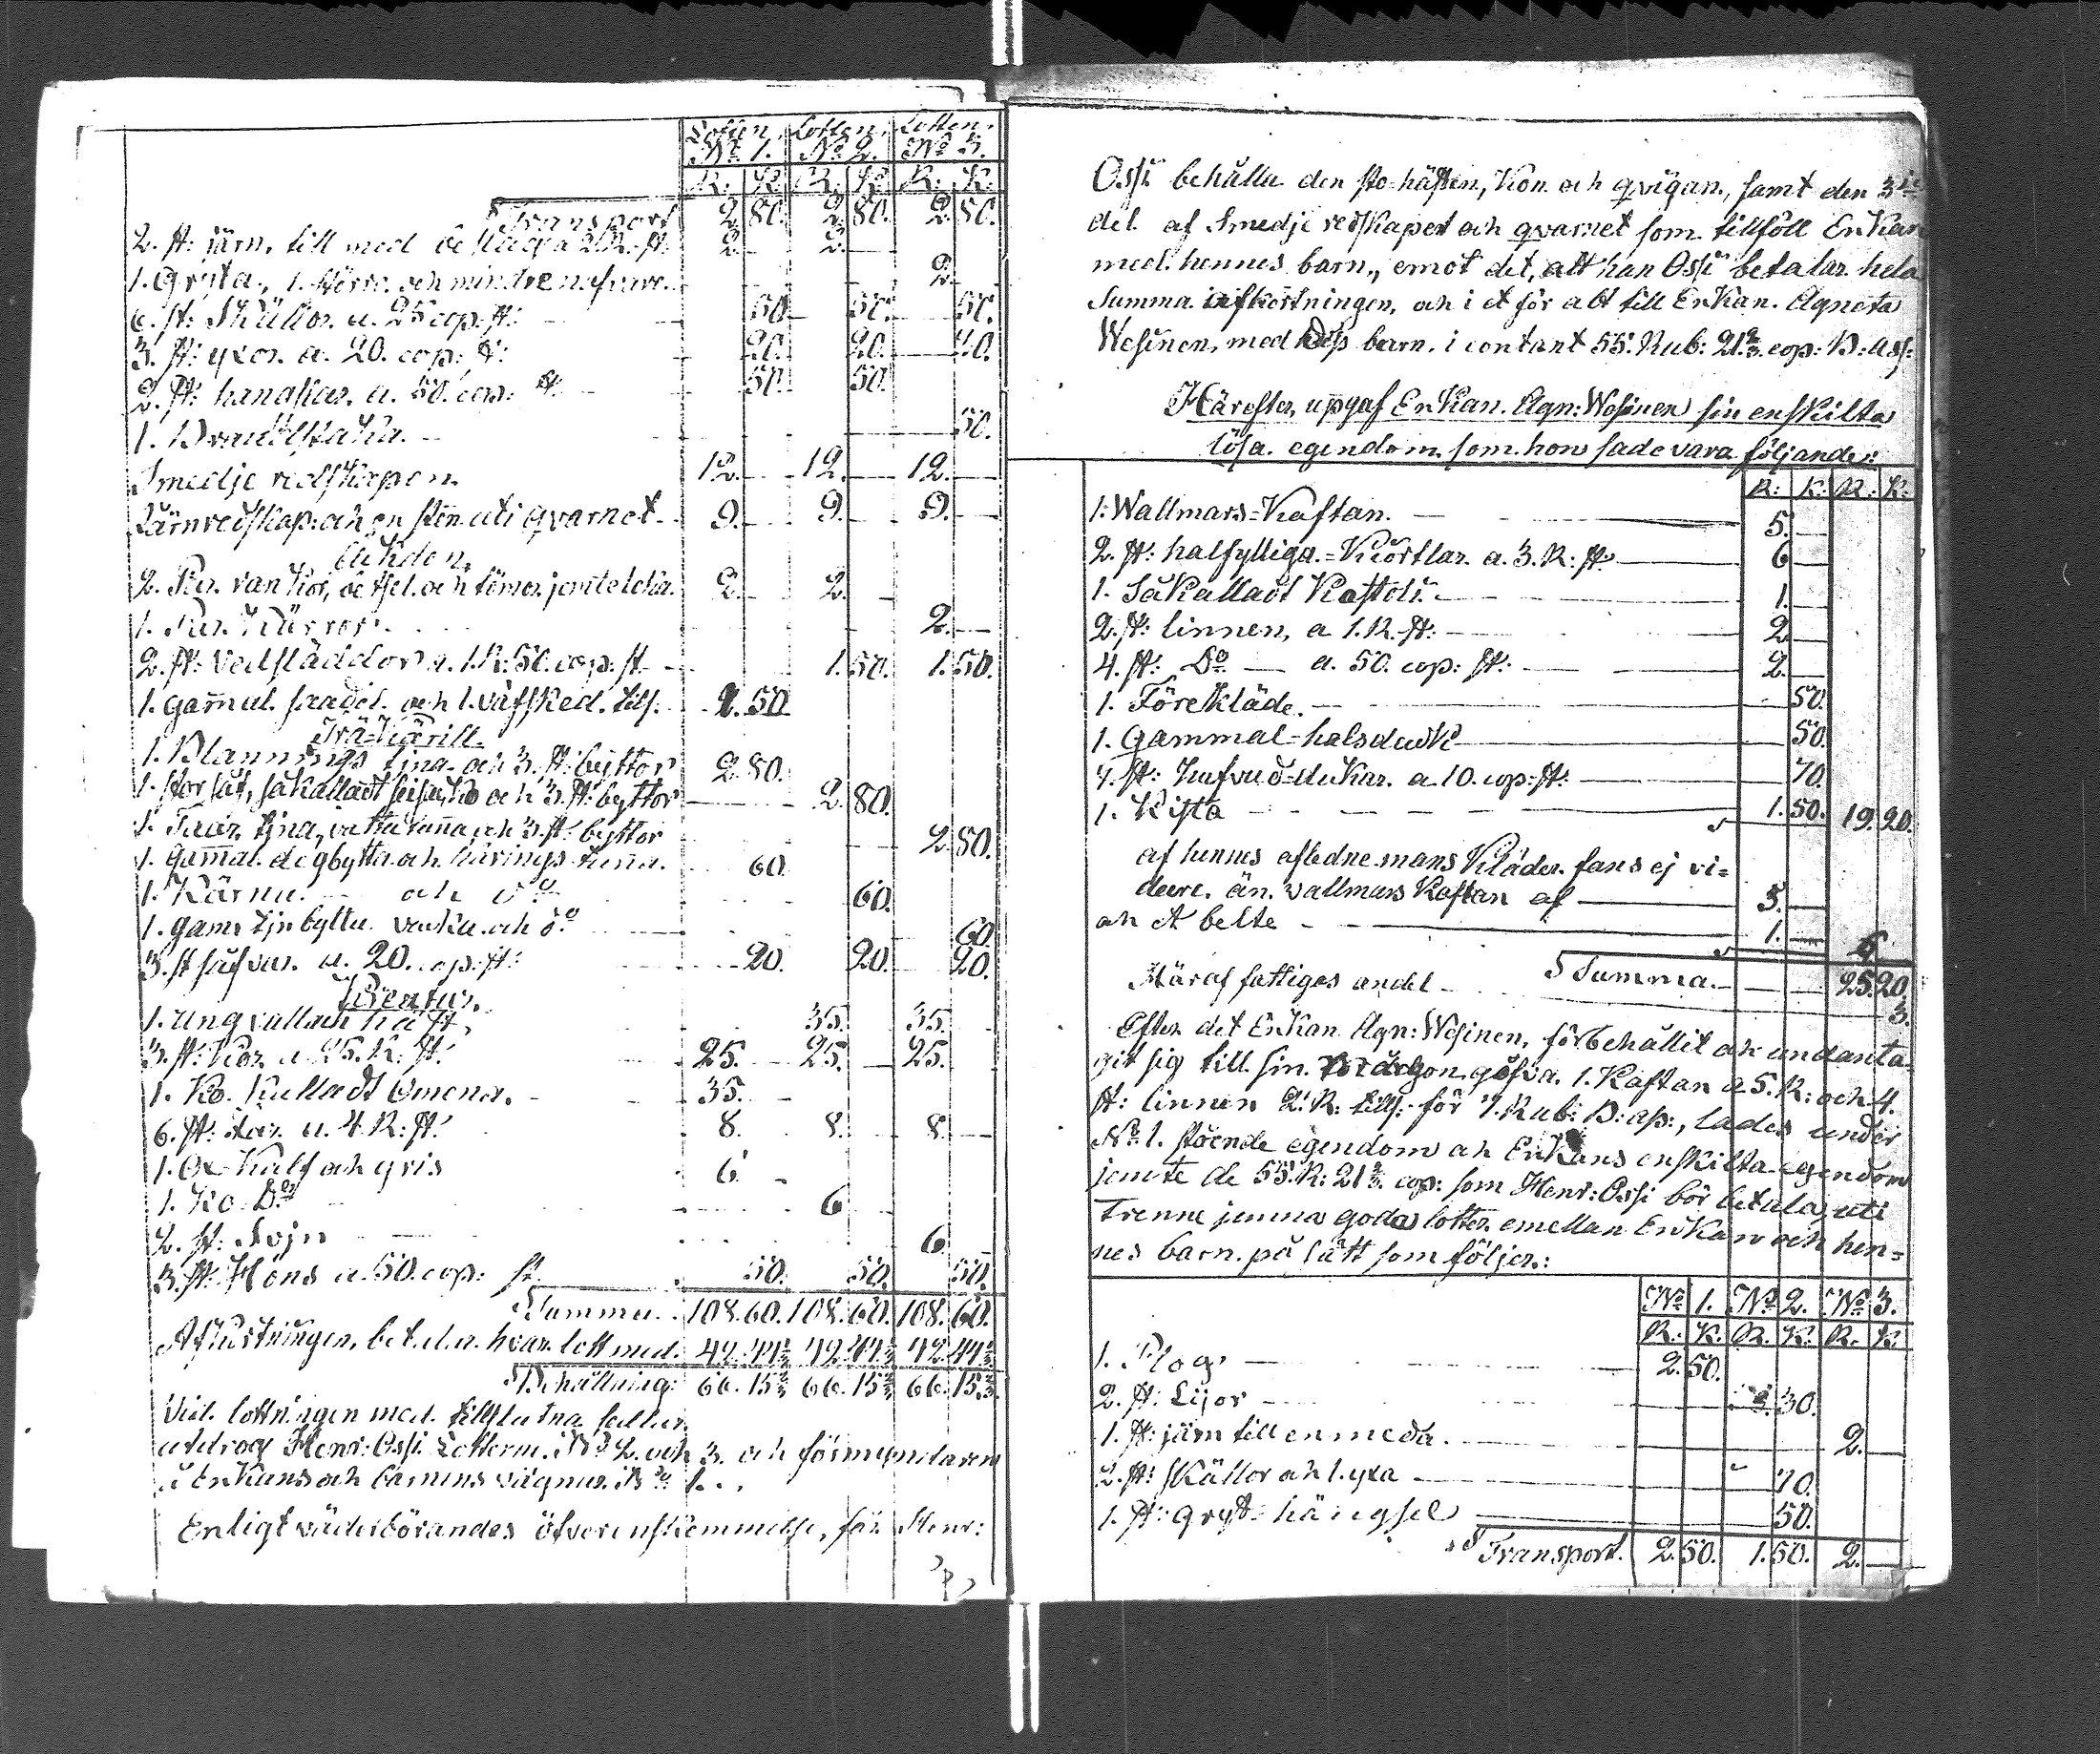 Lotten. Lotten. Lotten.
No 1. No 2. No 3.
R: K: R: K: R: K:
Transport 2. 80. 2. 80. 2. 50.
2. st: järn, till med beslagna a 2 R. st: 2. 2.
1. Gryta, 1. större och mindre nafvare. 2.
6. st: Skällor. a. 25 cop: st: 50. 50. 50.
3. st: yxor. a. 20. cop: st: 20. 20. 20.
2. st: handskar. a. 50. cop: st. 50. 50.
1. 50.
Smedje redskapen 12. 12. 12.
Järnredskap: och en sten uti qvarnet. 9. 9. 9.
Åkdon.
2. Par. rankor, betsel. och tömar. jemte loka. 2. 2.
1. Par. Kärror. 2.
2. st: Vedsläddor a. 1. R: 50. cop: st 1. 50. 1. 50.
1. gammal. sadel. och 1. väfsked. tills. 2. 50
Träkärill.
1. Blannings tina. och 3. st: byttor 2. 80.
1. stor så, såkalladt och 3. st: byttor 2. 80.
1. tina, vattu tunna och 3. st: byttor 2. 80.
1. gammal. degbytta. och härings tunna. 60.
1. Kärna. och do 60.
1. gam. bytta. och do 60.
3. st a. 20. cop: st: 20. 20. 20.
Creatur.
1. ung vallack häst. 35. 35.
3. st: Kor a 25. R: st: 25. 25. 25.
1. Ko. kalladt Omena. 35.
6. st: får. a. 4. R: st: 8. 8. 8.
1. Ox-Kalf och gris 6.
1. Ko. Do 6
2. st: Svin 6
3. st: Höns a. 50. cop: st. 50. 50. 50.
Summa. 108. 60. 108. 60. 108. 60.
Afkortningen, bet. d.a. hvar. lott med. 42. 44⅓ 42. 44⅓ 42. 44⅓
Behållning: 66. 15⅔ 66. 15⅔ 66. 15⅔
Vid. lottningen med. tillslutna sedlar
utdrog Henr: Ossi Lotterne. No 2. och 3. och förmyndaren
å Enkans och barnens vägnar. No 1.
Enligt väderbörandes öfverenskommelse, får Henr:
Ossi behålla den sto-hästen, Kon. och qvigan, samt den 3je
del. af Smedje redskapet och qvarnet som tillföll Enkan
med. hennes barn., emot det, att han Ossi betalar hela
Summa afkortningen, och i et för alt till Enkan. Agneta
Wesinen, med dess barn. i contant 55. Rub: 21⅔ cop: B: ass:
Härefter, uppgaf Enkan. Agn: Wesinen sin enskilta
lösa. egendom. som. hon sade vara följande:
R: K: R: K:
1. Wallmars=Kaftan. 5.
2. st: halfylliga.=Kiortlar. a. 3. R: st: 6
1. Såkalladt Kostoli. 1.
2. st: linnen, a 1. R. st: 2
4. st: Do a. 50. cop: st: 2.
1. Förekläde. 50.
1. Gammal=halsduk 50.
7. st: hufvud=dukar. a. 10. cop: st: 70.
1. Kista 1. 50. 19. 20.
af hennes aflednemans Kläder. fans ej vi=
dare. än. vallmars Kaftan af 5.
och et belte 1. 6
Summa. 25. 20
Häraf fattiges andel 3.
Efter det Enkan Agn: Wesinen, förbehållit och undanta=
git sig till sin. morgongofva. 1. Kaftan a 5. R: och 4.
st: linnen 2. R: tills: för 7. Rub: B: ass:, lades under
No 1. stående egendom och Enkans enskilta egendom
jemte de 55. R: 21⅔. cop: som Henr: Ossi bör betala, uti
Trenne jemna goda lotter. emellan Enkan och hen=
nes barn. på sätt som följer.:
No 1. No 2. No 3.
R: K: R: K: R: K:
1. Plog 2. 50.
2. st: Lijor 30.
1. st: järn till en meda. 2.
2. st: skällor och 1. yxa 70.
1. st: gryt-hängsel 50.
Transport. 2. 50. 1. 50. 2.